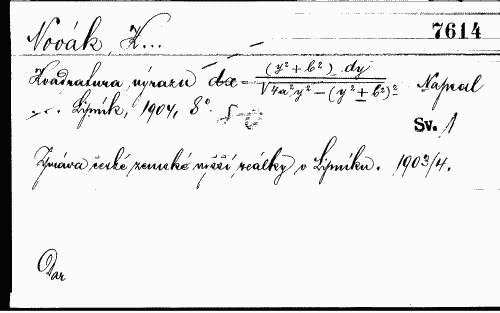 Novák, K... 7614
Kvadratura výrazu dx = (y² + b²) dy / √4a²y² − (y² ± b²)² Napsal
... Lipník, 1904, 8°.
Sv. 1
Zpráva české zemské vyšší reálky v Lipníku. 1903/4.
Dar